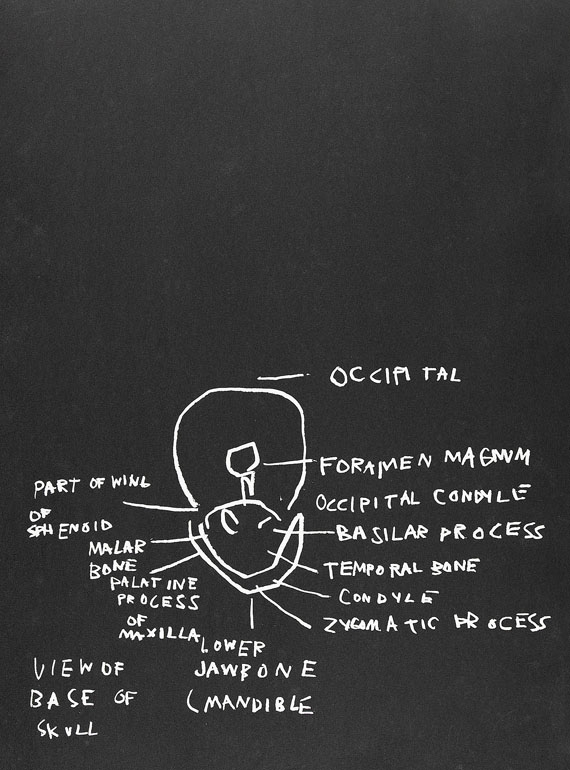 OCCIPITAL
FORAMEN MAGNUM
OCCIPITAL CONDYLE
BASILAR PROCESS
TEMPORAL BONE
CONDYLE
ZYGOMATIC PROCESS
PART OF WING
OF
SPHENOID
MALAR
BONE
PALATINE
PROCESS
OF
MAXILLA
LOWER
JAWBONE
(MANDIBLE
VIEW OF
BASE OF
SKULL